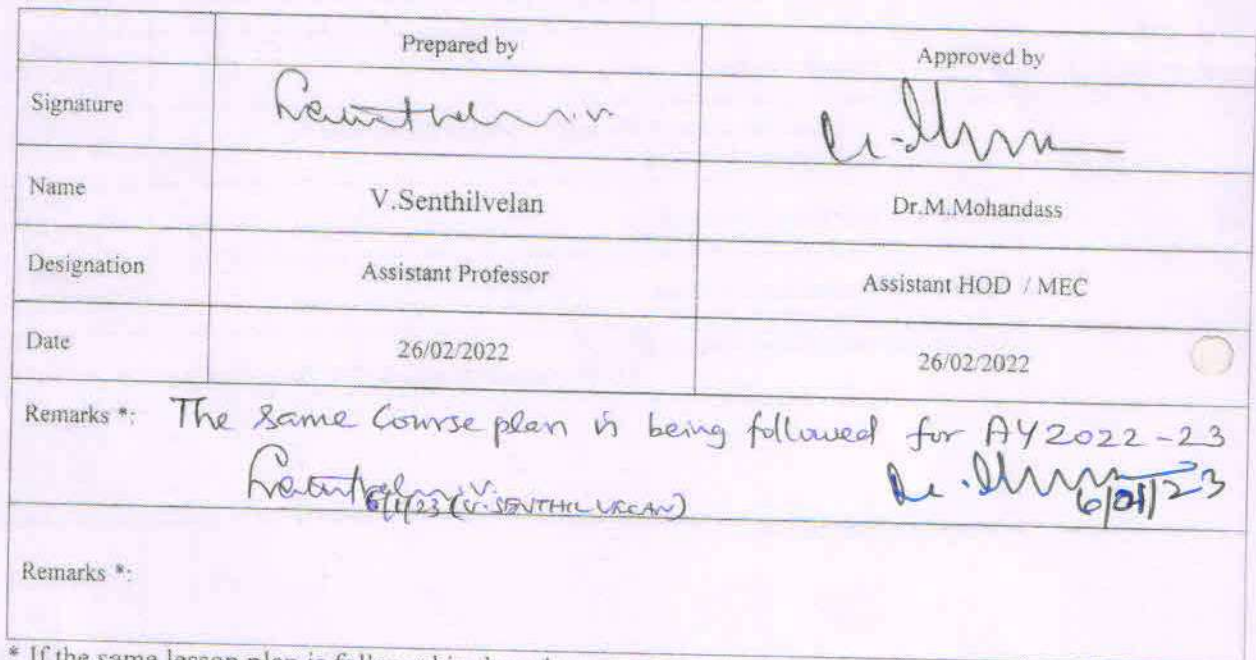 Prepared by Approved by
Signature
Name V.Senthilvelan Dr.M.Mohandass
Designation Assistant Professor Assistant HOD / MEC
Date 26/02/2022 26/02/2022
Remarks *: The same Course plan is being followed for AY 2022-23
6/1/23 (V. SENTHILVELAN) 6/01/23
Remarks *:
* If the same lesson plan is followed in the